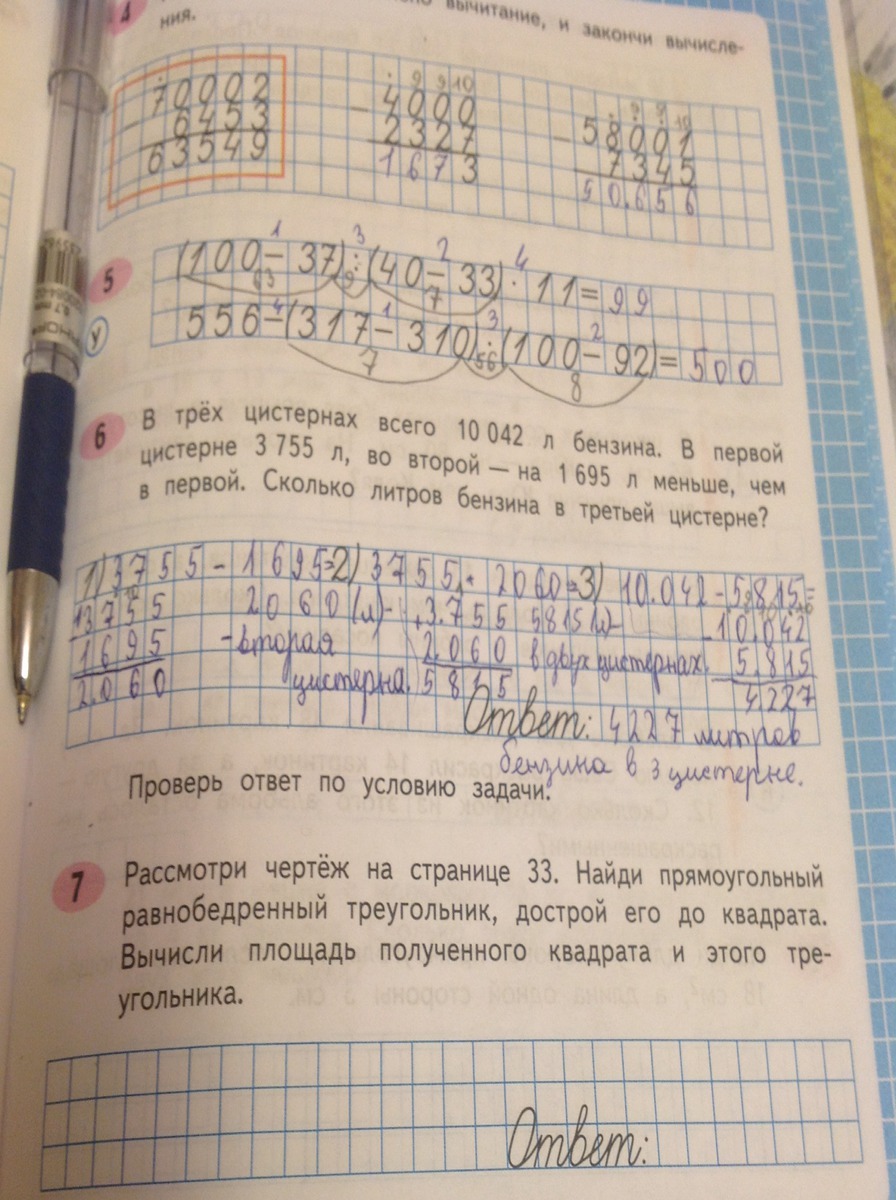 4
вычитание, и закончи вычисле-
ния.
70002
- 6453
63549
9 9 10
- 4000
2327
1673
9 9 10
- 58001
7345
50.656
5
1 3 2 4
(100 - 37) : (40 - 33) · 11 = 99
63 9 7
У
4 1 3 2
556 - (317 - 310) · (100 - 92) = 500
7 56 8
6
В трёх цистернах всего 10 042 л бензина. В первой
цистерне 3 755 л, во второй — на 1 695 л меньше, чем
в первой. Сколько литров бензина в третьей цистерне?
1) 3755 - 1695 = 2) 3755 + 2060 = 3) 10.042 - 5.815 =
- 3755 2060 (л) - + 3.755 5815 (л) - - 10.042
1695 - вторая 2.060 в двух цистернах. 5.815
2.060 цистерна. 5815 4.227
Ответ: 4227 литров
бензина в 3 цистерне.
Проверь ответ по условию задачи.
7
Рассмотри чертёж на странице 33. Найди прямоугольный
равнобедренный треугольник, дострой его до квадрата.
Вычисли площадь полученного квадрата и этого тре-
угольника.
Ответ: